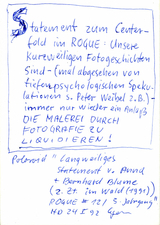 Statement zum Center-
fold in ROGUE: Unsere
Kurzweiligen Fotogeschichten
Sind - (mal abgesehen von
tiefenpsychologischen Speku-
lationen s. Peter Weibel z.B.) -
immer nur wieder ein Anlaß
DIE MALEREI DURCH
FOTOGRAFIE ZU
LIQUIDIEREN!
"Langweiliges
Statement v. Anna
+ Bernhard Blume
(z. Zt. im Wald (1991)
ROGUE # 12/5. Jahrgang"